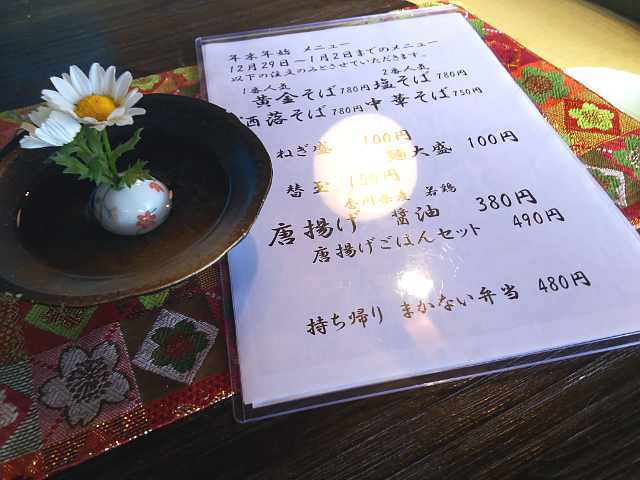 年末年始 メニュー
12月29日～1月2日までのメニュー
以下の注文のみとさせていただきます。
1番人気 2番人気
黄金そば780円 塩そば780円
洒落そば780円 中華そば750円
ねぎ盛 100円 麺大盛 100円
替玉 150円
香川県産 若鶏
唐揚げ 醤油 380円
唐揚げごはんセット 490円
持ち帰り まかない弁当 480円